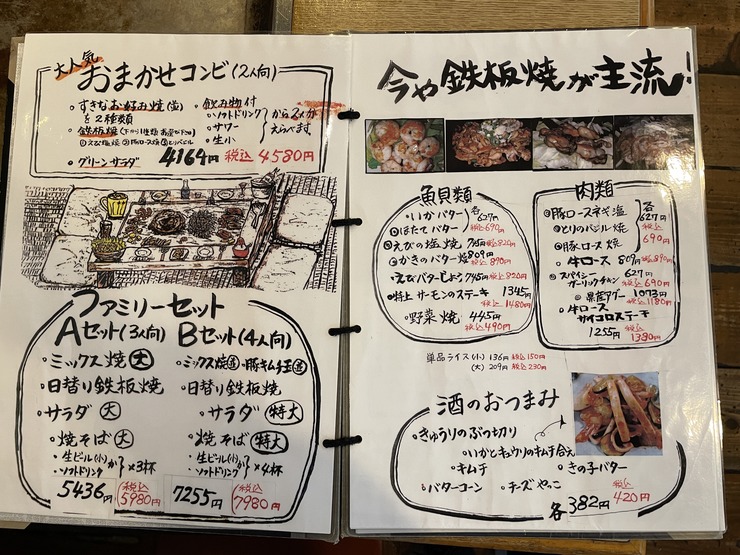 大人気
おまかせコンビ(2人向)
・すきなお好み焼(並)
を2種類
・鉄板焼(下から1種類お選び下さい)
①えび塩焼②豚ロース焼③とりバジル
・グリーンサラダ
・飲み物付
・ソフトドリンク
・サワー
・生小
から2人分
えらべます
4164円 税込4580円
ファミリーセット
Aセット(3人向)
・ミックス焼大
・日替り鉄板焼
・サラダ大
・焼そば大
・生ビール(小)
・ソフトドリンク
か×3杯
5436円 税込5980円
Bセット(4人向)
・ミックス焼並・豚キムチ玉並
・日替り鉄板焼
・サラダ特大
・焼そば特大
・生ビール(小)
・ソフトドリンク
か×4杯
7255円 税込7980円
今や鉄板焼が主流!
魚貝類
・いかバター
ほたてバター
各627円
税込690円
えびの塩焼 745円 税込820円
かきのバター焼 809円 税込890円
・えびバターしょうゆ 745円 税込820円
・特上サーモンのステーキ 1345円
税込1480円
・野菜焼 445円
税込490円
肉類
豚ロースネギ塩
とりのバジル焼
豚ロース焼
各627円
税込690円
・牛ロース 809円 税込890円
スパイシーガーリックチキン 627円
税込690円
1073円
税込1180円
・牛ロースサイコロステーキ
1255円 税込1380円
単品ライス(小)136円 税込150円
(大)209円 税込230円
酒のおつまみ
・きゅうりのぶつ切り
・いかとキュウリのキムチ合え
・キムチ ・きの子バター
・バターコーン ・チーズやっこ
各382円
税込420円